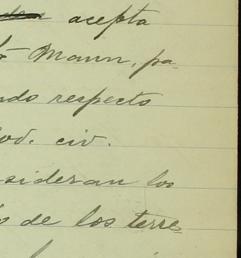 acepta
Mann, pa-
ndo respecto
od. civ.
sideran los
s de los terre-